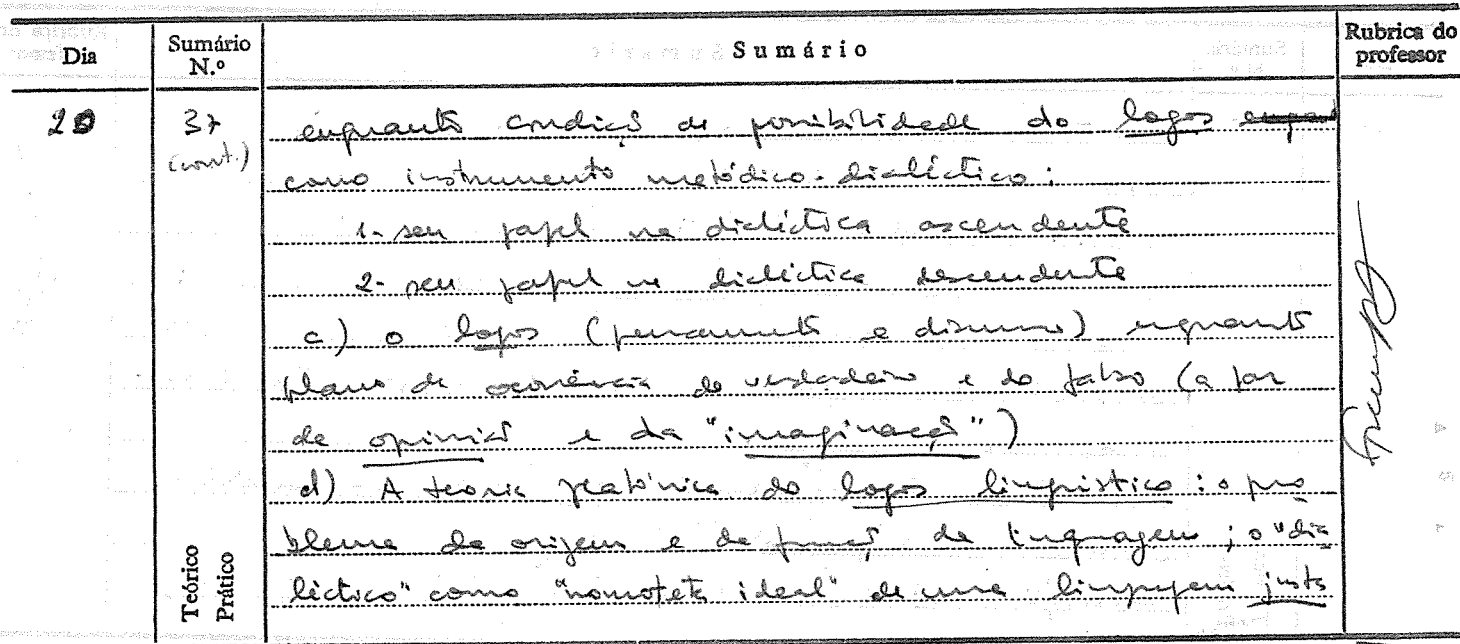 Dia Sumário N.º Sumário Rubrica do professor
20 37 (cont.) enquanto condição de possibilidade do logos
como instrumento metódico-dialéctico:
1- seu papel na dialéctica ascendente
2- seu papel na dialéctica descendente
c) o logos (pensamento e discurso) enquanto
plano de ocorrência do verdadeiro e do falso (a par
da opinião e da "imaginação")
d) A teoria platónica do logos linguístico: o pro
blema da origem e da função da linguagem; o "dia
léctico" como "nomoteta ideal" de uma linguagem justa
Teórico
Prático